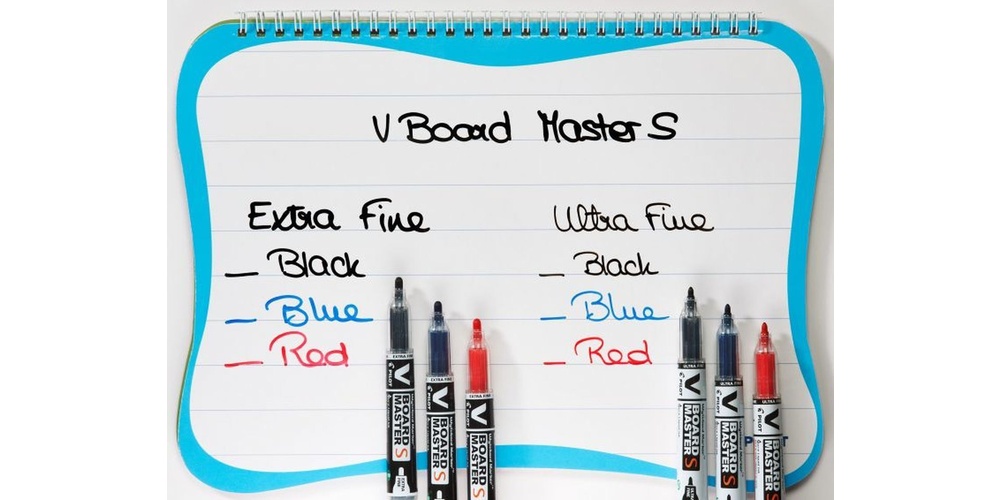 V Board Master S
Extra Fine
_ Black
_ Blue
_ Red
Ultra Fine
_ Black
_ Blue
_ Red
EXTRA FINE
PILOT
V BOARD MASTER S
EXTRA FINE
EXTRA FINE
PILOT
V BOARD MASTER S
EXTRA FINE
PILOT
V BOARD MASTER S
ULTRA FINE
PILOT
V BOARD MASTER S
ULTRA FINE
PILOT
V BOARD MASTER S
ULTRA FINE
PILOT
V BOARD MASTER S